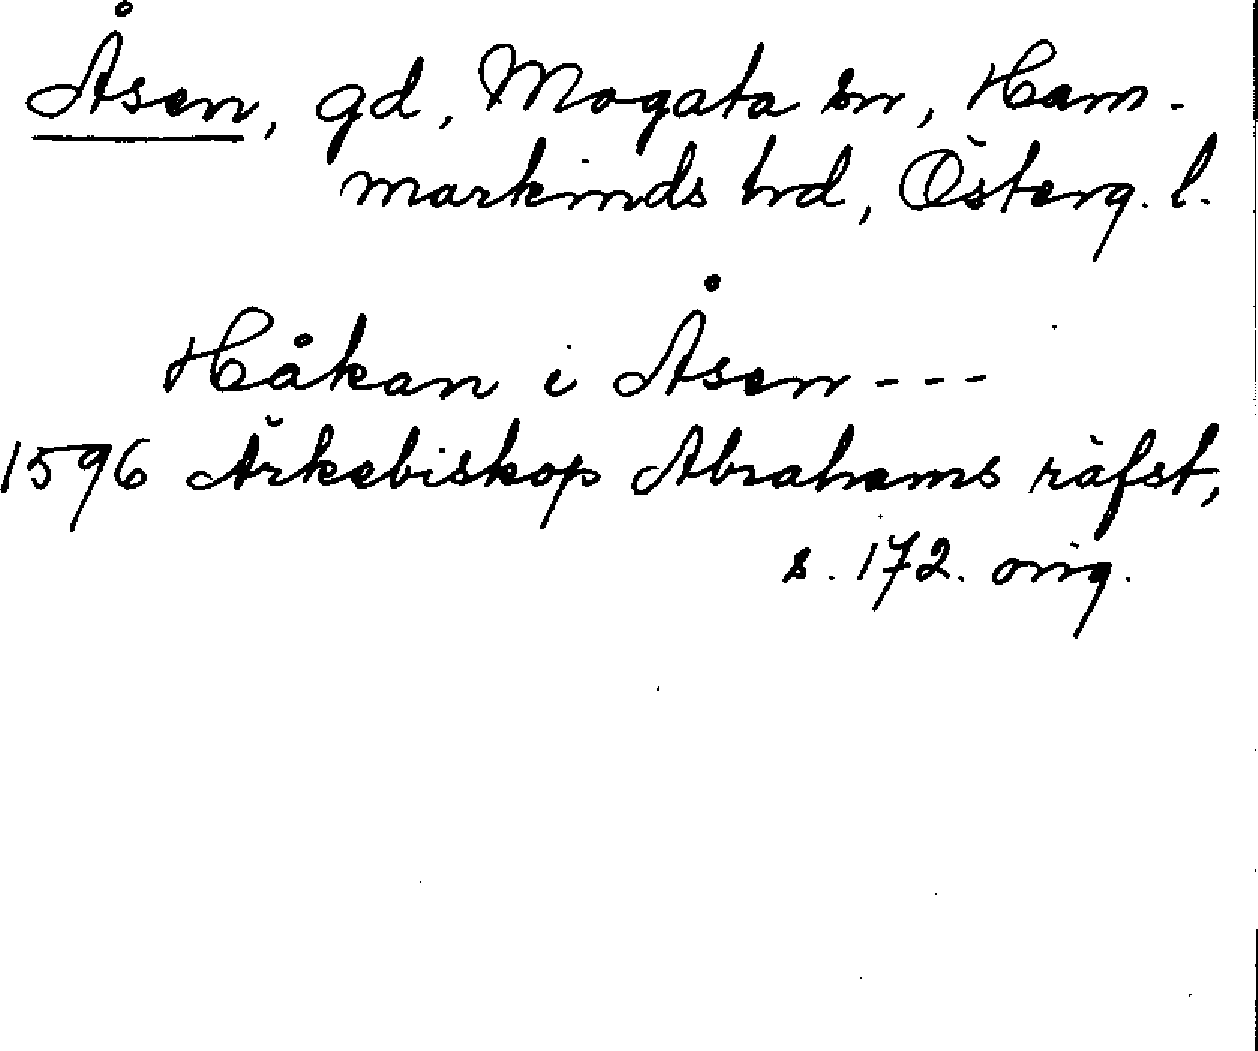 Åsen, gd, Mogata sn, Ham-
markinds hd, Österg. l.
Håkan i Åsen ---
1596 Ärkebiskop Abrahams räfst,
s. 172. orig.